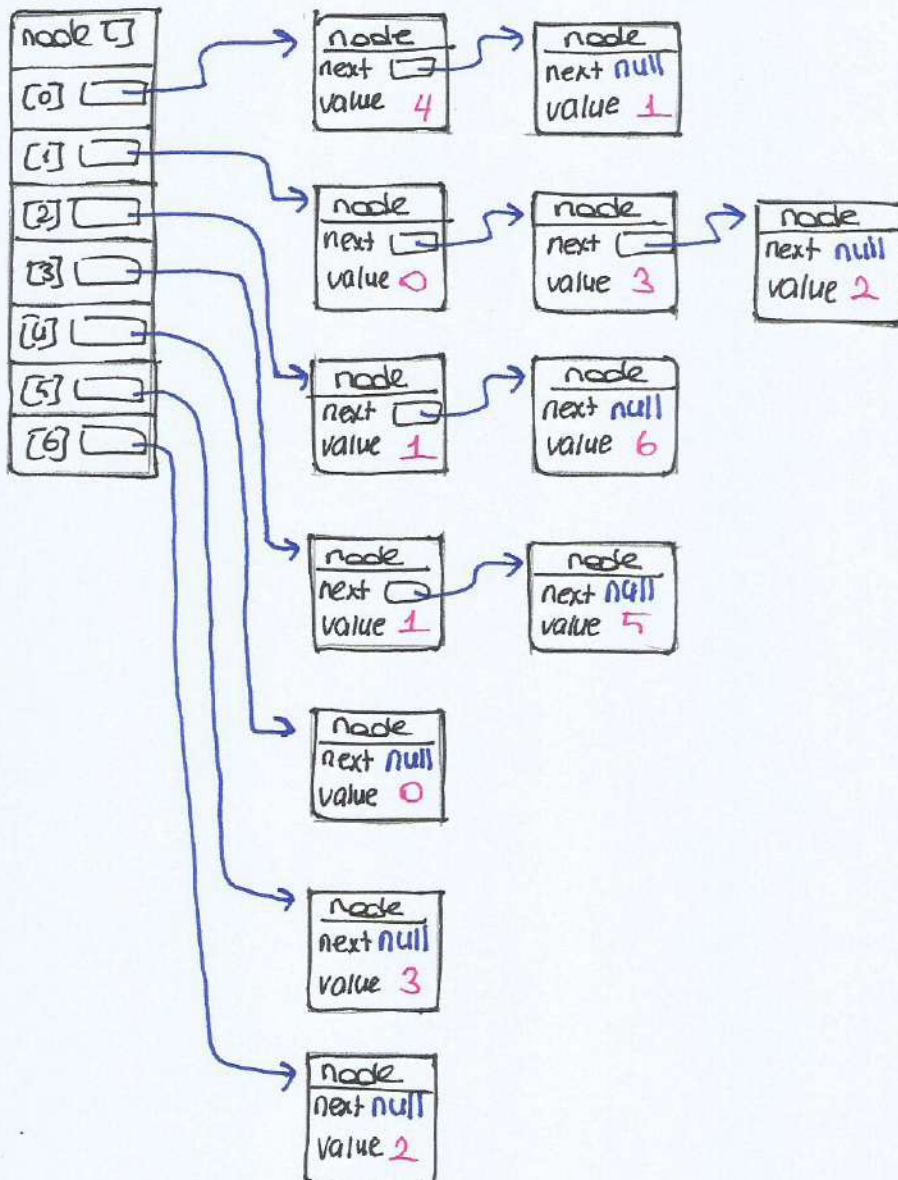 node []
[0]
[1]
[2]
[3]
[4]
[5]
[6]
node
next
value 4
node
next null
value 1
node
next
value 0
node
next
value 3
node
next null
value 2
node
next
value 1
node
next null
value 6
node
next
value 1
node
next null
value 5
node
next null
value 0
node
next null
value 3
node
next null
value 2